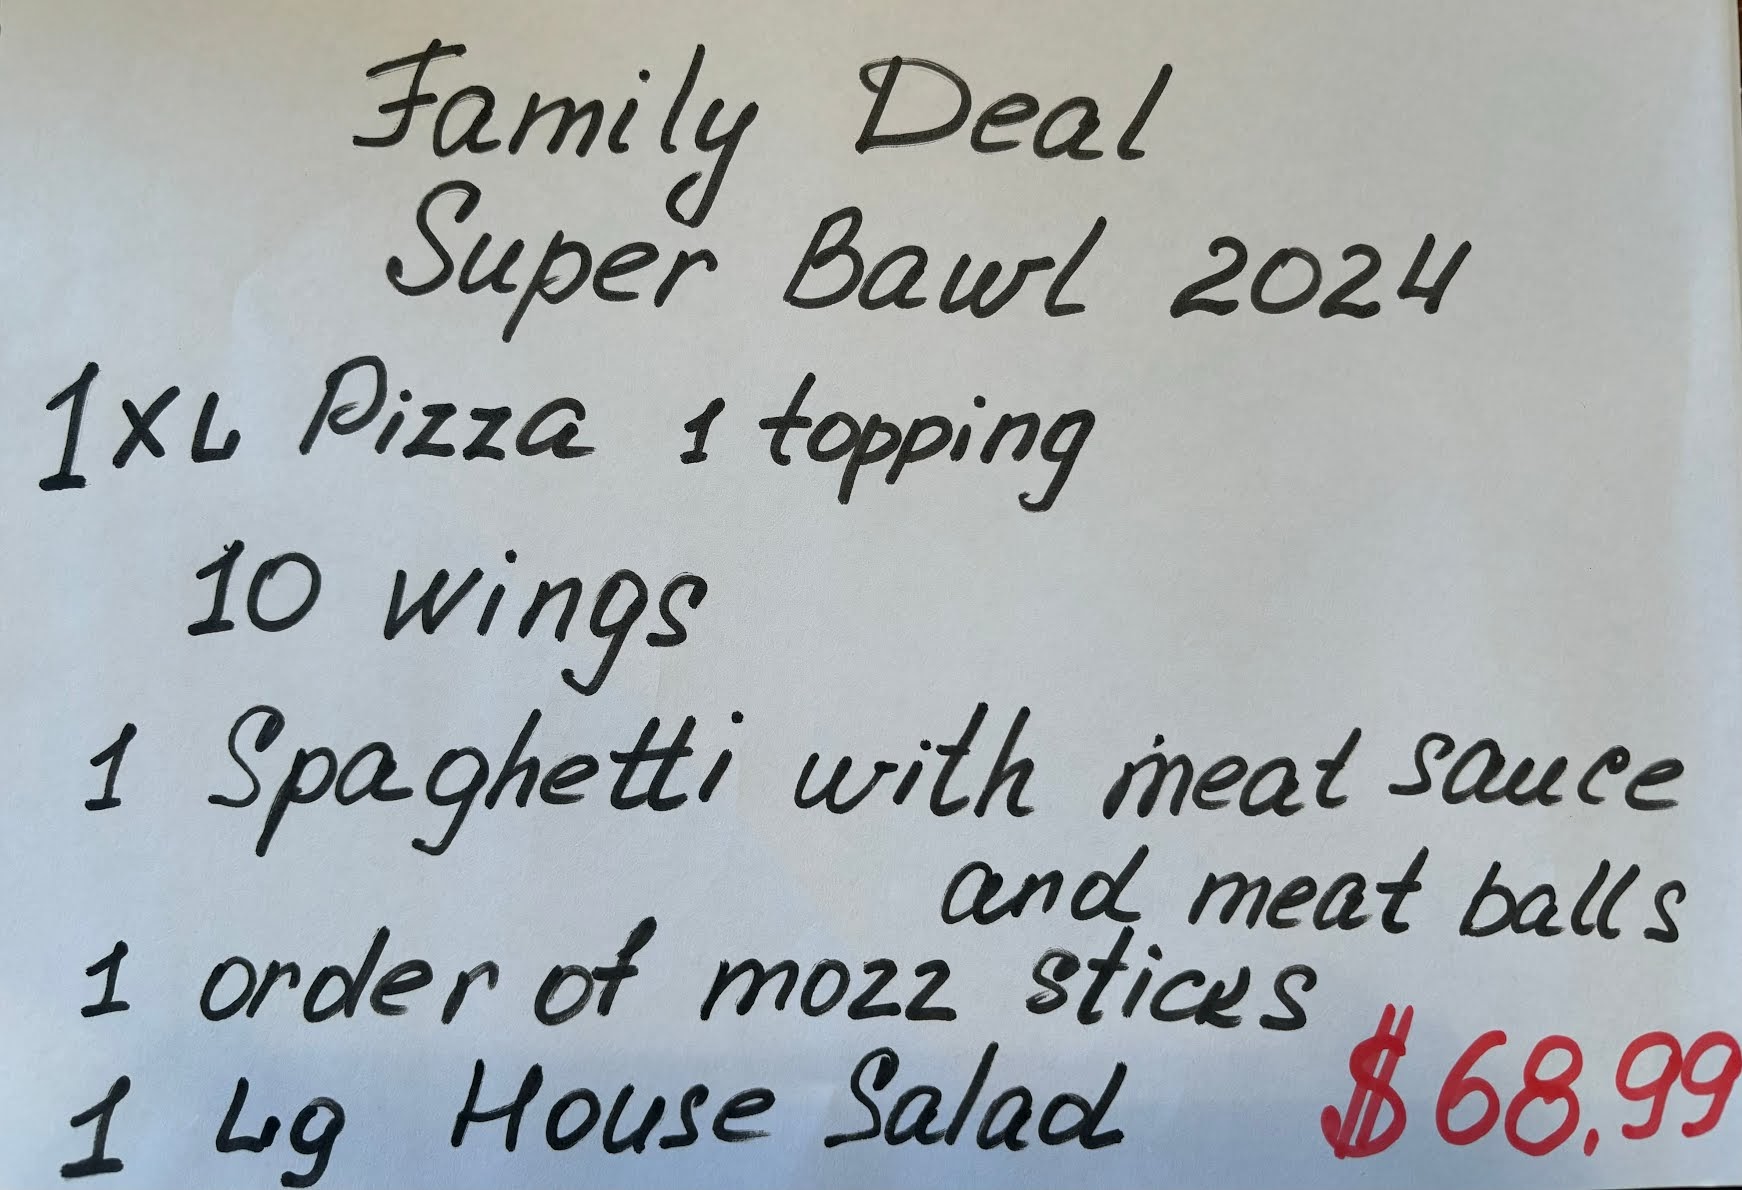 Family Deal
Super Bawl 2024
1 XL Pizza 1 topping
10 wings
1 Spaghetti with meat sauce
and meat balls
1 order of mozz sticks
1 Lg House Salad
$68.99